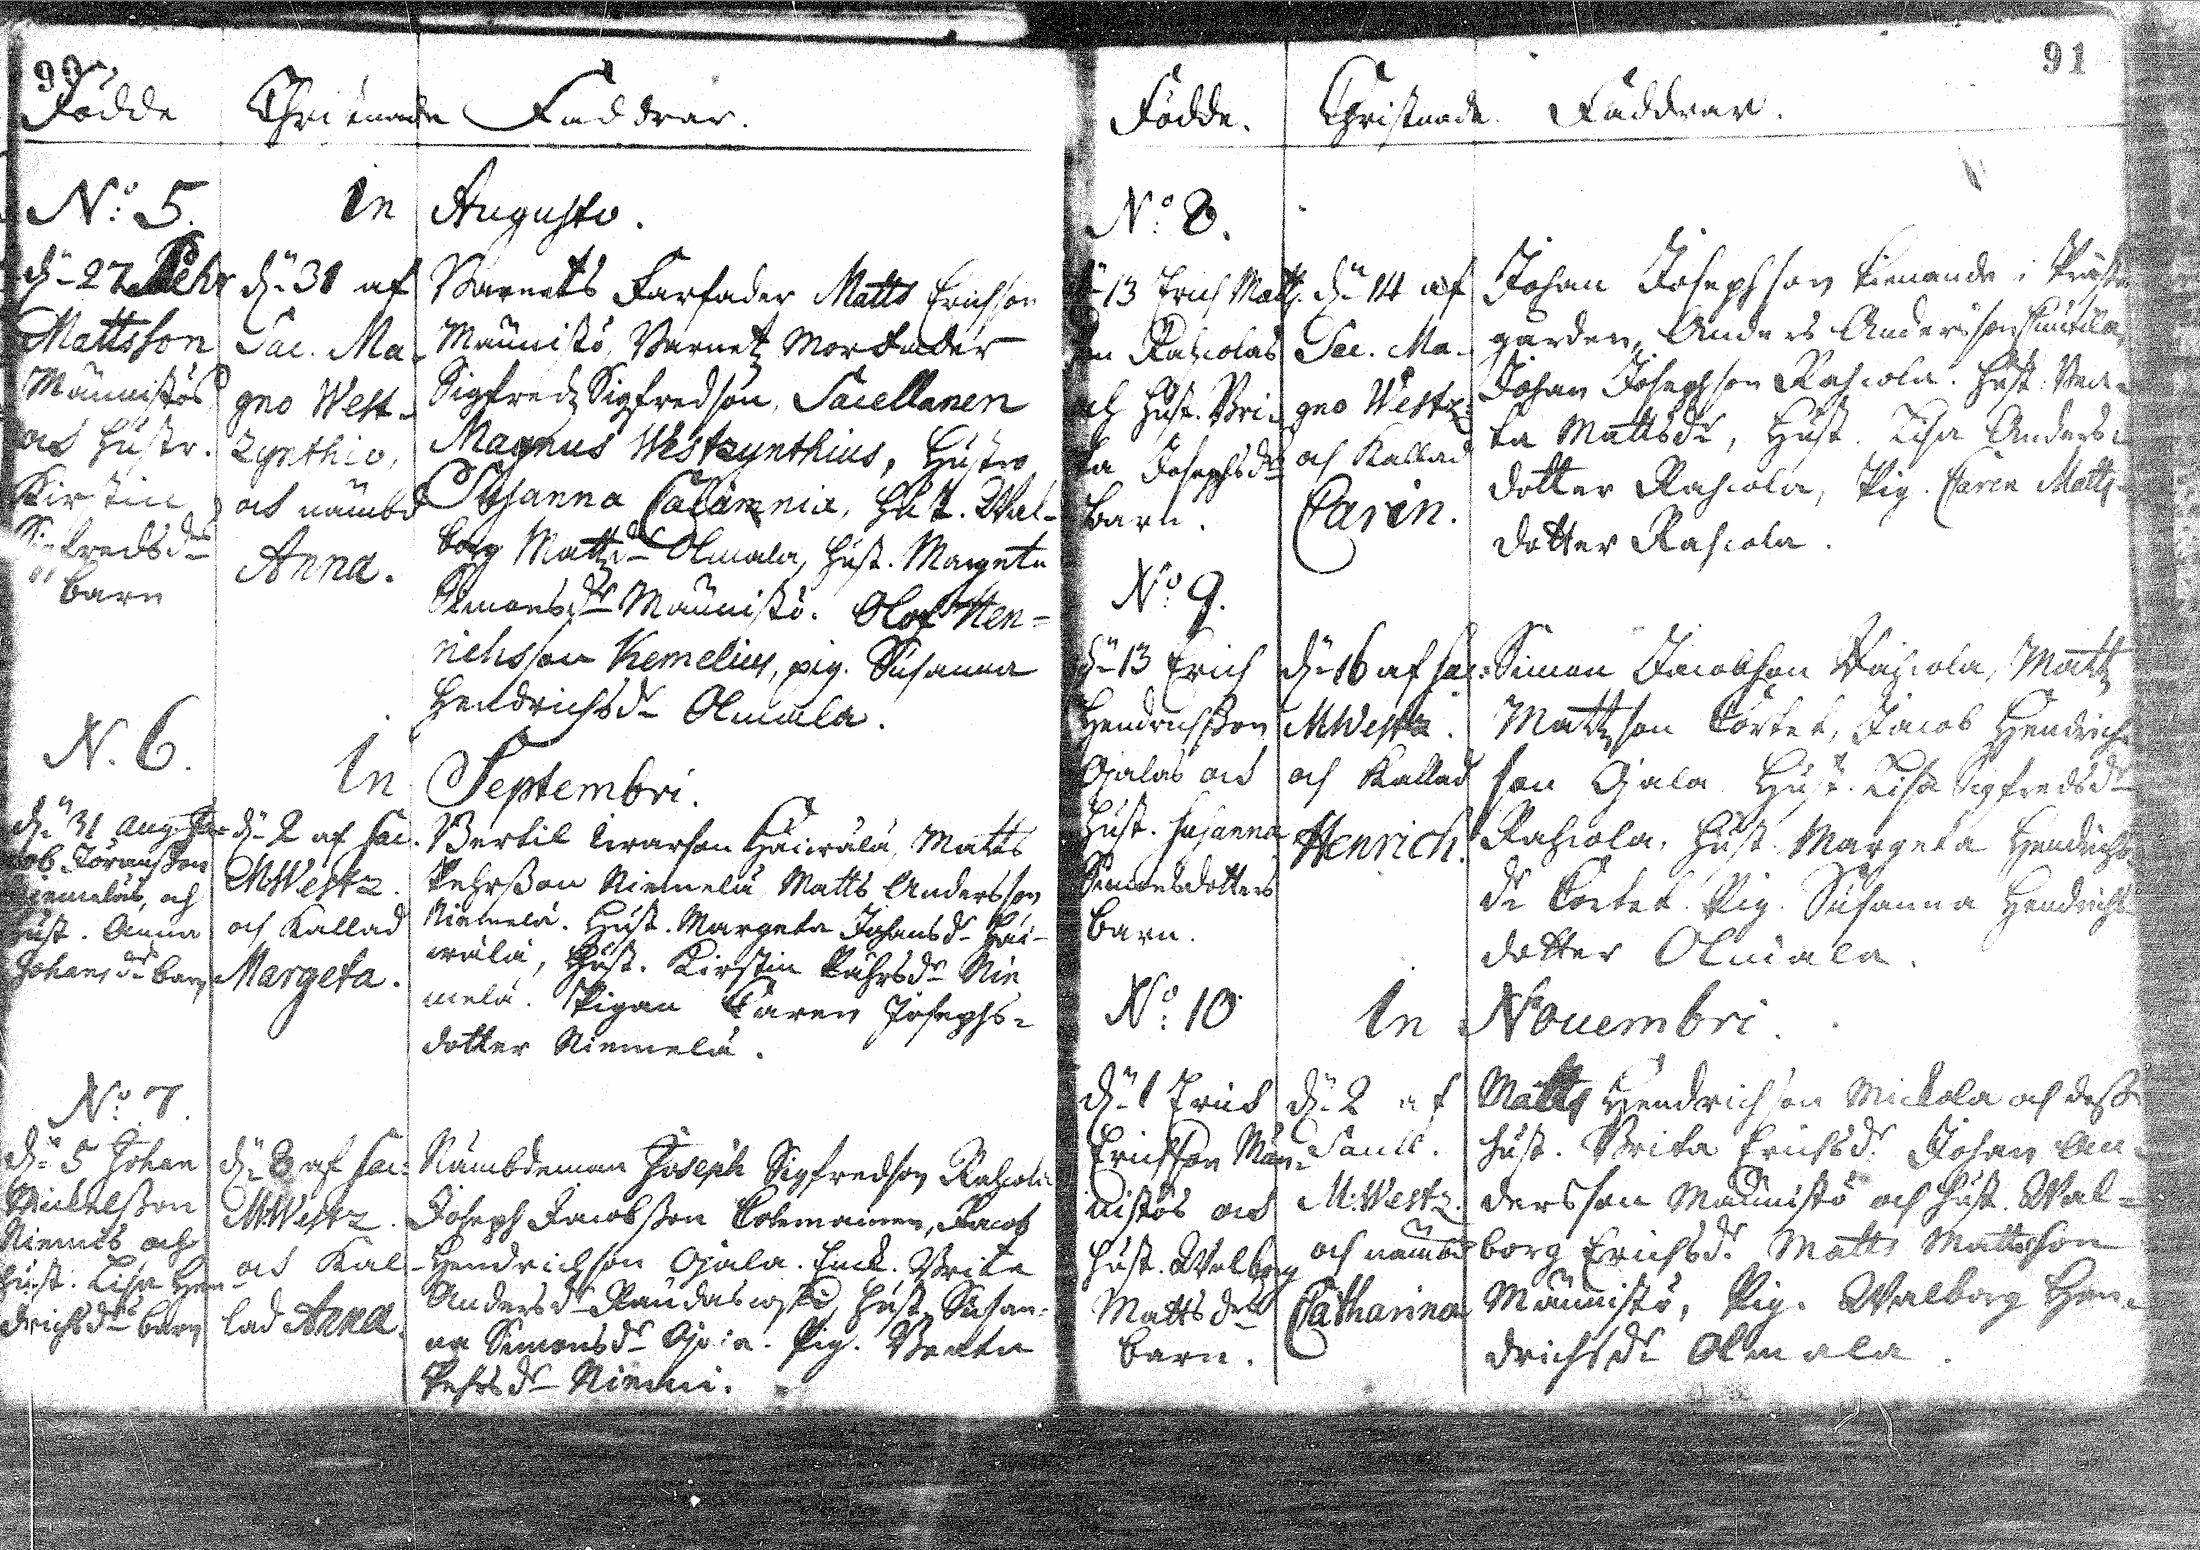 90
Födde Christnade Faddrar.
No: 5. In Augusto.
d. 27 Pehr
Mattsson
Männistös
och hustr.
Kirstin
Sigfredsdrs
barn
d. 31 af
Sac. Ma-
gno West-
zynthio,
och nämbd
Anna.
Barnets Farfader Matts Erichson
Männistö, Barnetz Morfader
Sigfredz Sigfredson, Sacellanen
Magnus Westzynthius, Hustro
Susanna Calamnia, Hust. Wal-
borg Mattzdr Olmala, Hust. Margeta
Simonsdr Männistö. Olof Hen-
richsson Kemelius, pig. Susanna
Hendrichsdr Olmala.
N. 6. In Septembri.
d. 31 Aug. Ja-
cob Göransson
Niemeläs, och
Hust. Anna
Johansdrs barn
d. 2 af Sac.
M. Westz.
och Kallad
Margeta.
Bertil Ivarson Häiwälä, Matts
Pehrsson Niemelä Matts Andersson
Niemelä. Hust. Margeta Johansdr Häi-
wälä, Hust. Kirstin Pährsdr Nie
melä. Pigan Caren Josephs-
dotter Niemelä.
No: 7.
d. 5 Johan
Michelsson
Niemis och
Hust. Lisa Hen-
drichsdrs barn
d. 8 af Sac:
M. Westz.
och Kal-
lad Anna.
Nämbdeman Joseph Sigfredson Rahiola
Joseph Jacobsson Colemainen, Jacob
Hendrichson Ojala. Enck. Brita
Andersdr Raudasioja, Hust. Susan-
na Simonsdr Ojala. Pig. Beata
Pehrsdr Niemi.
91
Födde. Christnade. Faddrar.
No: 8.
d. 13 Erich Matts-
son Rahiolas
och Hust. Bri-
ta Josephsdrs
barn.
d. 14 af
Sac. Ma-
gno Westz.
och Kallad
Carin.
Johan Josephson tienande i Präste
gården, Anders Andersson
Johan Josephson Rahiola. Hust. Bea-
ta Mattsdr, Hust. Lisa Anders-
dotter Rahiola, Pig. Caren Matts-
dotter Rahiola.
No: 9.
d. 13 Erich
Hendrichsson
Ojalas och
Hust. Susanna
Simonsdotters
barn.
d. 16 af Sac:
M Westz.
och Kallad
Henrich.
Simon Jacobson Rahiola, Mattz
Mattzson Törtet, Jacob Hendrich-
son Ojala Hust. Lisa Sigfredsdr
Rahiola, Hust. Margeta Hendrichs-
dr Törtet. Pig. Susanna Hendrichs
dotter Olmala.
No: 10 In Nouembri.
d. 1 Erich
Erichson Män-
nistös och
Hust. Walborg
Mattsdrs
barn.
d. 2 af
Sacell.
M: Westz.
och nämbd
Catharina
Matts Hendrichson Mickola och dess
Hust. Brita Erichsdr. Johan An-
dersson Männistö och Hust. Wal-
borg Erichsdr. Matts Mattsson
Männistö, Pig. Walborg Hen-
drichsdr Olmala.